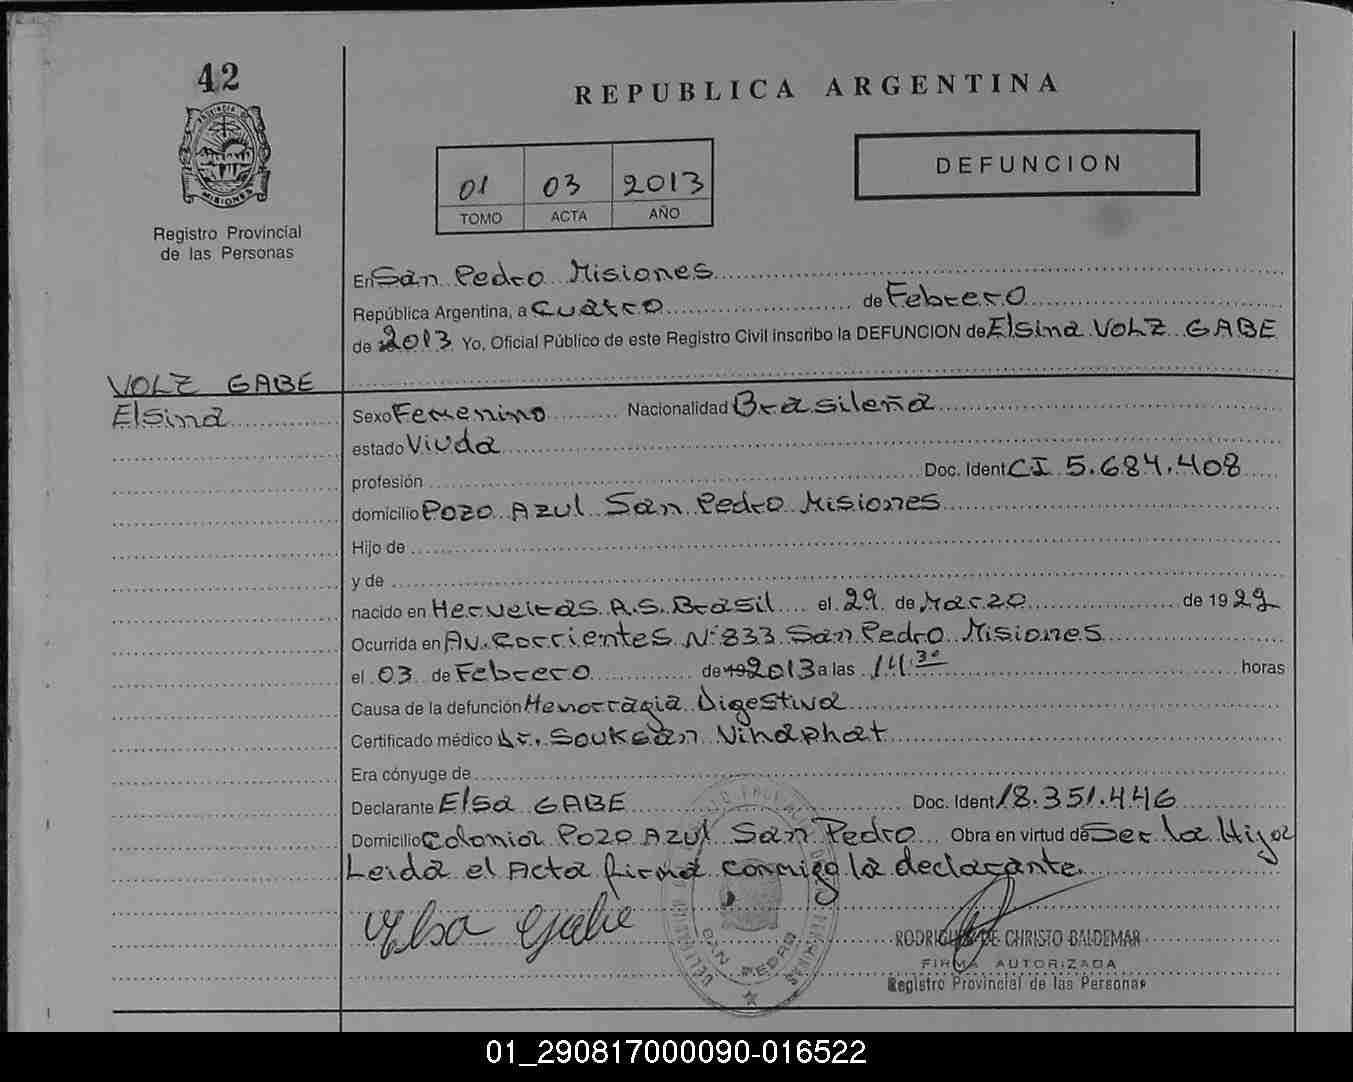 42
MISIONES
Registro Provincial
de las Personas
REPUBLICA ARGENTINA
01 03 2013
TOMO ACTA AÑO
DEFUNCION
En San Pedro Misiones
República Argentina, a Cuatro de Febrero
de 2013 Yo, Oficial Público de este Registro Civil inscribo la DEFUNCION de Elsina VOLZ GABE
VOLZ GABE
Elsina
Sexo Femenino Nacionalidad Brasileña
estado Viuda
profesión Doc. Ident CI 5.684.408
domicilio Pozo Azul San Pedro Misiones
Hijo de
y de
nacido en R.S. Brasil el 29 de Marzo de 1929
Ocurrida en Av. Corrientes N° 833 San Pedro Misiones
el 03 de Febrero de 19 2013 a las 14:30 horas
Causa de la defunción Hemorragia Digestiva
Certificado médico Dr. Souksan Vihaphat
Era cónyuge de
Declarante Elsa GABE Doc. Ident 18.351.446
Domicilio Colonia Pozo Azul San Pedro Obra en virtud de Ser la Hija
Leida el Acta firma conmigo la declarante.
Elsa Gabe
SAN PEDRO
RODRIGUEZ DE CHRISTO BALDEMAR
FIRMA AUTORIZADA
Registro Provincial de las Personas
01_290817000090-016522